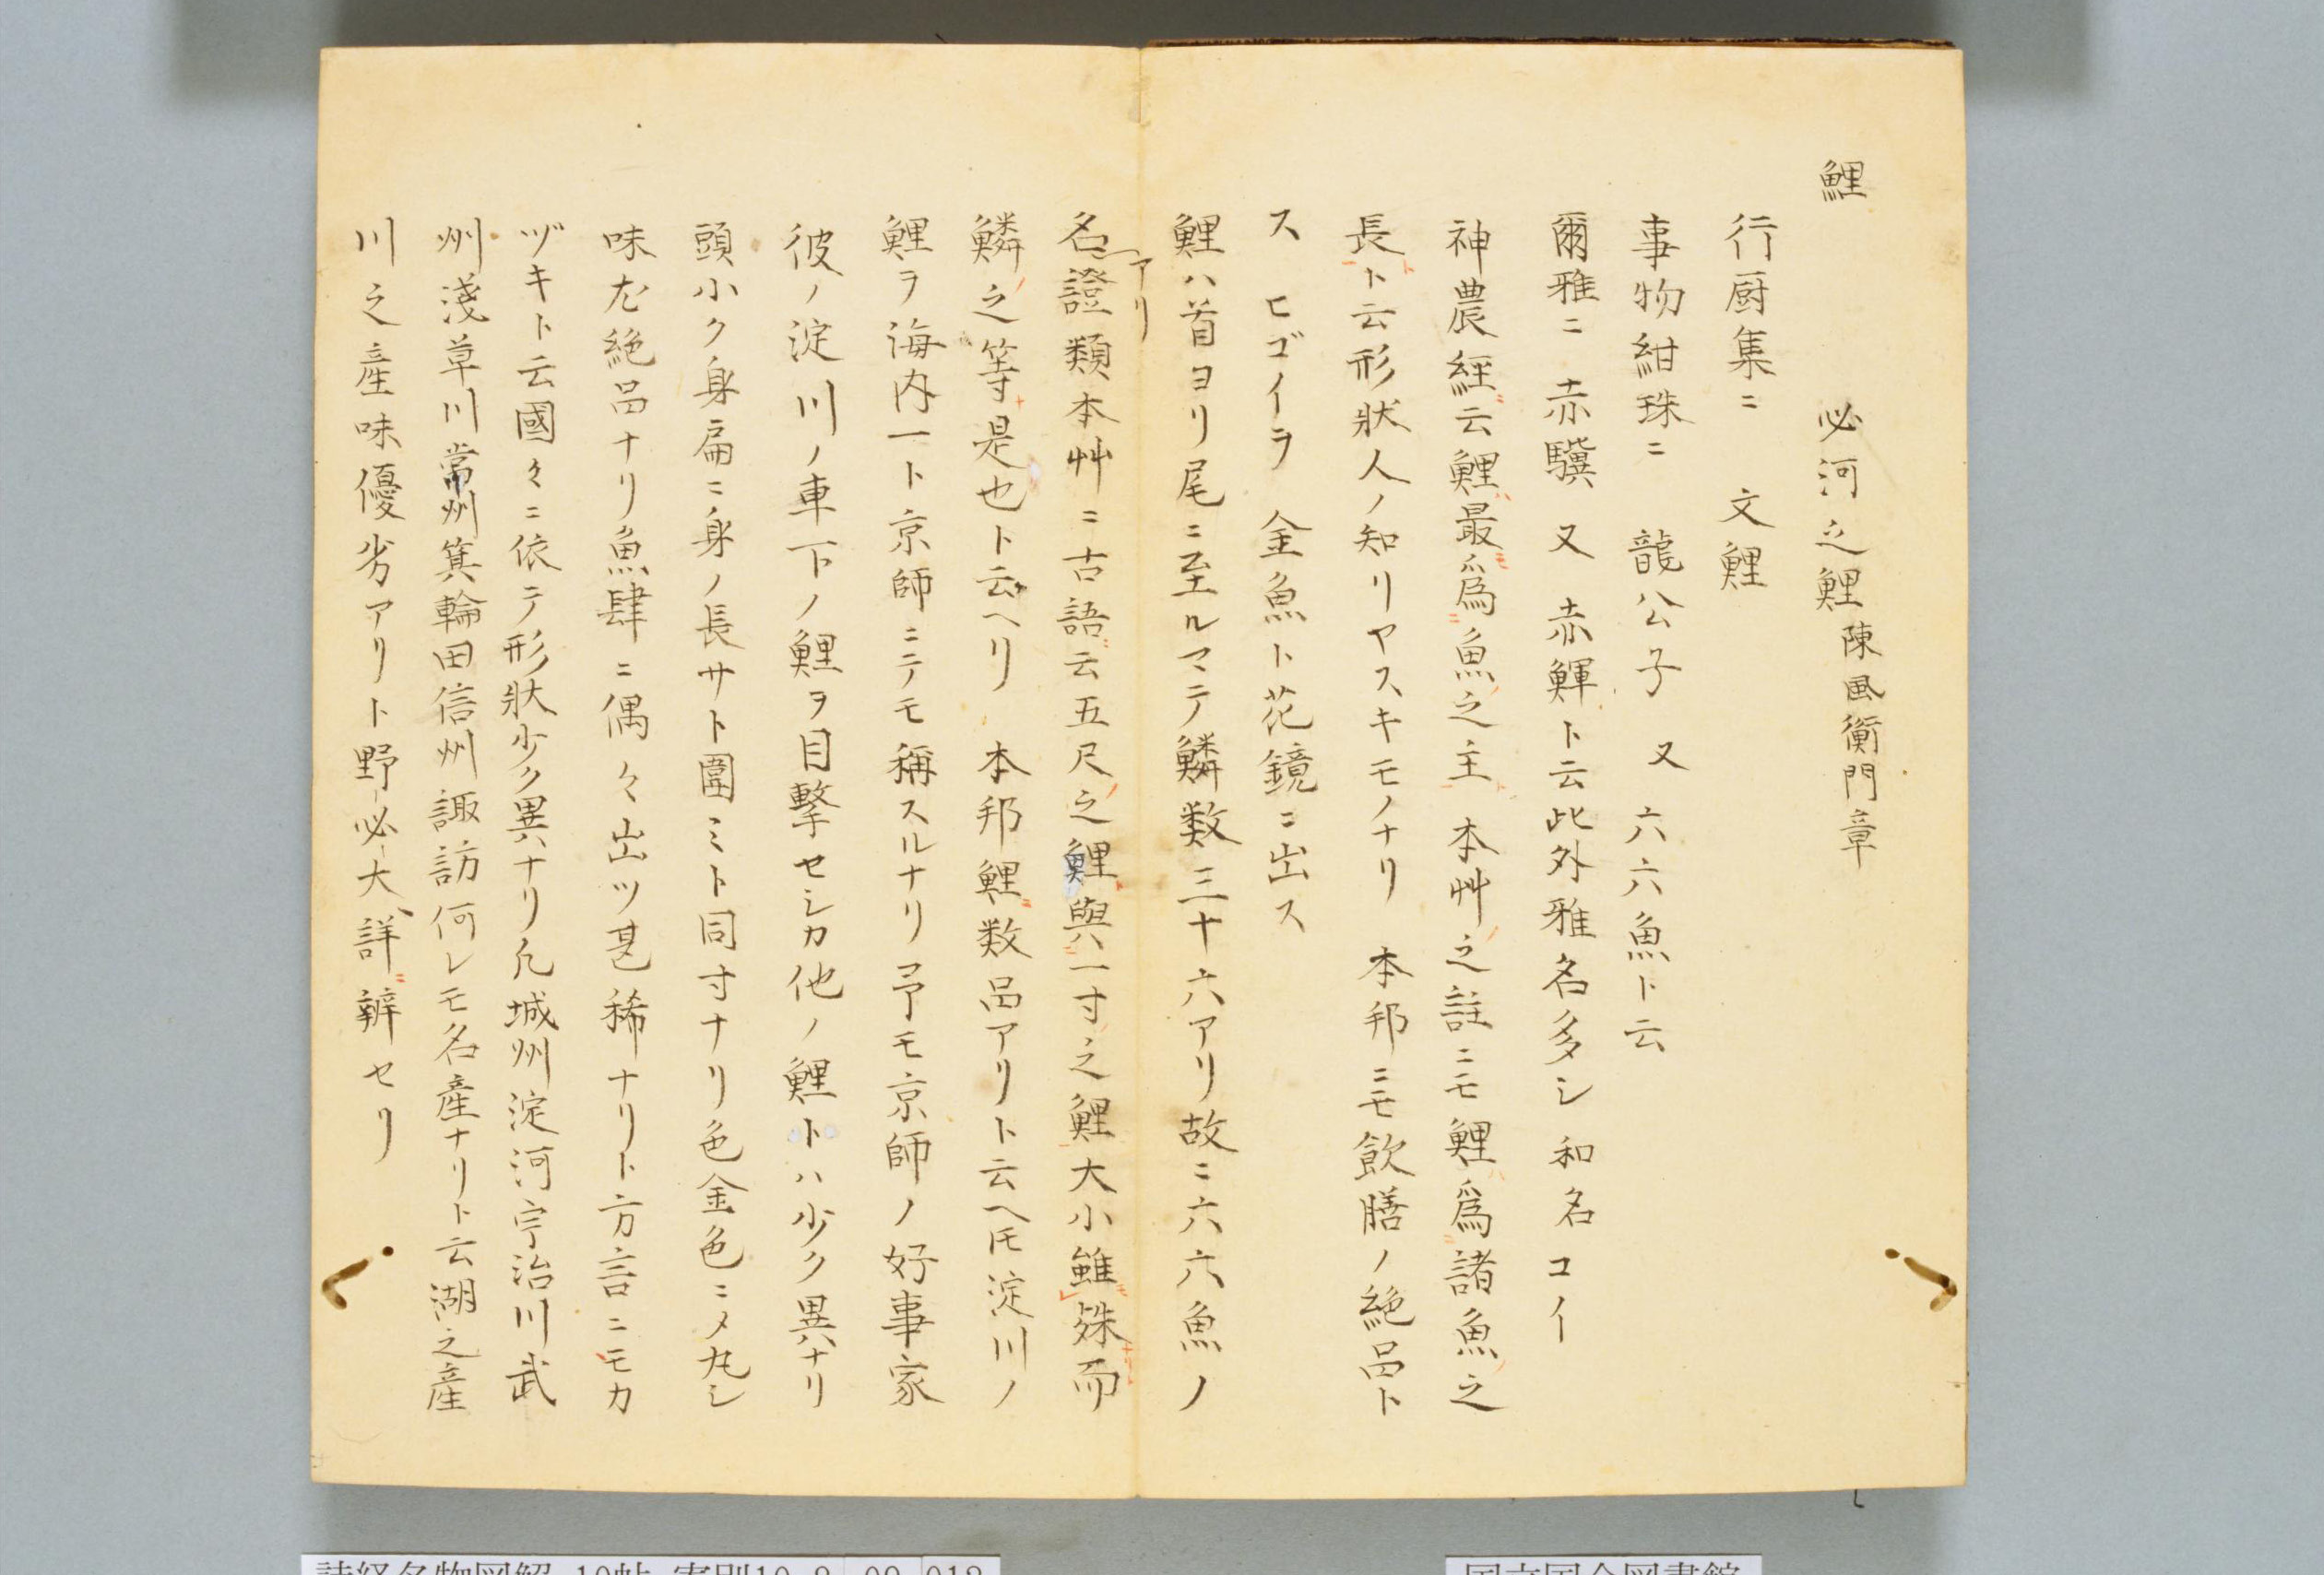 鯉
必河之鯉 陳風衡門章
行厨集ニ 文鯉
事物紺珠ニ 龍公子 又 六六魚ト云
爾雅ニ 赤驥 又 赤鯶ト云此外雅名多シ 和名コイ
神農経云鯉最爲魚之主 本艸之註ニモ鯉爲諸魚之
長ト云形狀人ノ知リヤスキモノナリ 本邦ニモ飲膳ノ絶品ト
ス ヒゴイヲ 金魚ト花鏡ニ出ス
鯉ハ首ヨリ尾ニ至ルマテ鱗数三十六アリ故ニ六六魚ノ
名アリ證類本艸ニ古語云五尺之鯉與一寸之鯉大小雖殊而
鱗之等是也ト云ヘリ 本邦鯉数品アリト云ヘ𪜈淀川ノ
鯉ヲ海内一ト京師ニテモ稱スルナリ予モ京師ノ好事家
彼ノ淀川ノ車下ノ鯉ヲ目擊セシカ他ノ鯉トハ少ク異ナリ
頭小ク身扁ニ身ノ長サト圍ミト同寸ナリ色金色ニ〆丸シ
味尤絶品ナリ魚肆ニ偶々出ツ甚稀ナリト方言ニモカ
ヅキト云國々ニ依テ形狀少ク異ナリ凢城州淀河宇治川武
州淺草川常州箕輪田信州諏訪何レモ名産ナリト云湖之産
川之産味優劣アリト野必大詳辨セリ
詩経名物図解 10帖 寄別10-8 09 018
国立国会図書館